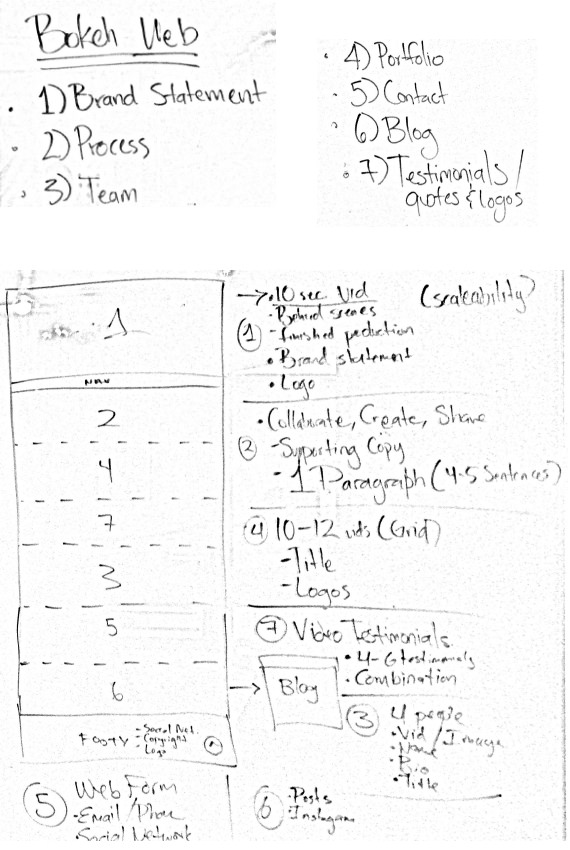 Bokeh Web
• 1) Brand Statement
• 2) Process
• 3) Team
• 4) Portfolio
• 5) Contact
• 6) Blog
• 7) Testimonials /
quotes & logos
1
NAV
2
4
7
3
5
6
Footy
- Social Net.
- Copyright
- Logo
→ • 10 sec. Vid (scaleability?
- Behind scenes
① - finished production
• Brand statement
• Logo
• Collaborate, Create, Share
② - Supporting Copy
- 1 Paragraph (4-5 Sentences)
④ 10-12 vids (Grid)
- Title
- Logos
⑦ Video Testimonials
• 4-6 testimonials
• Combination
→ Blog
③ 4 people
• Vid / Image
• Name
• Bio
• Title
⑤ Web Form
- Email / Phone
- Social Network
⑥ - Posts
- Instagram